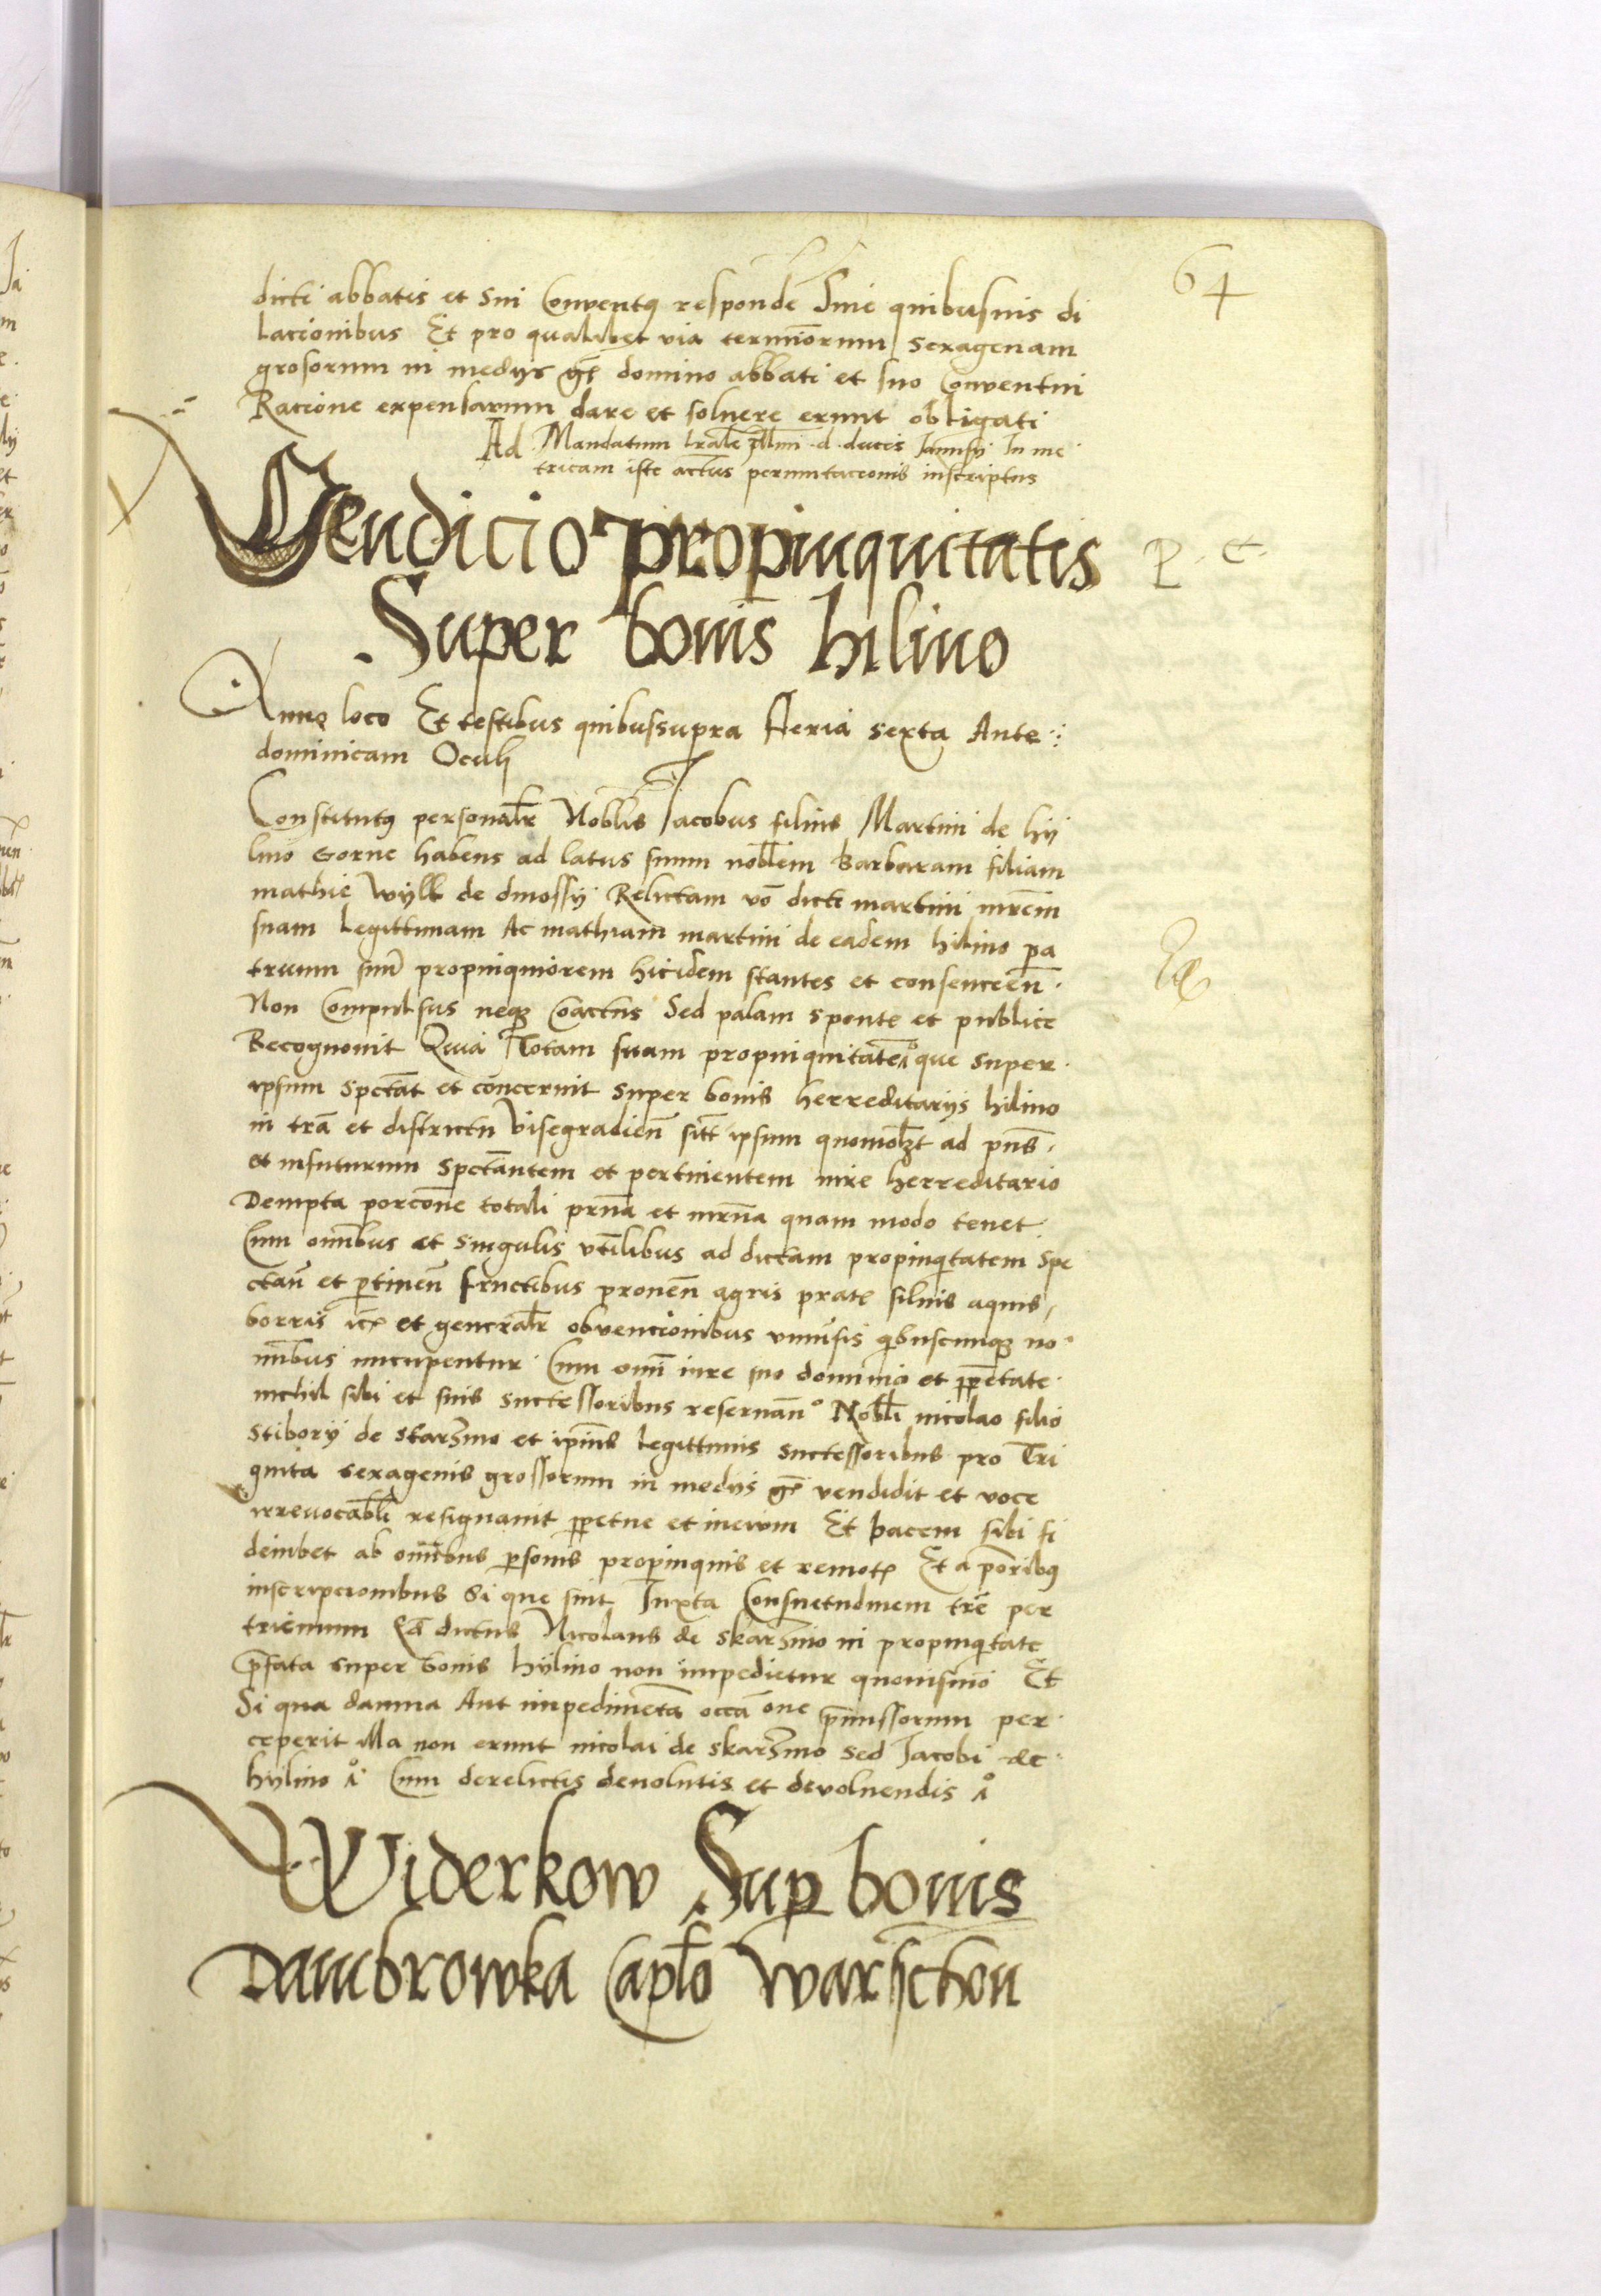 64
dicti abbatis et sui Conventus responde sine quibusuis di
lacionibus Et pro qualibet via terminorum sexagenam
grosorum in medijs gr̄ domino abbati et suo Conventui
Racione expensarum dare et soluere erunt obligati
Ad Mandatum lrāle illmi d. ducis Janusij In me
tricam iste actus permutacionis inscriptus
Vendicio propinquitatis
P. et.
Super bonis hilino
Anno loco Et testibus quibussupra Feria sexta Ante
dominicam Oculi
Constitutus personalr Nobilis Jacobus filius Martini de hy
lino Gorne habens ad latus suum nobilem Barbaram filiam
mathie wylk de dmossij Relictam vō dicti martini mrēm
suam legittimam Ac mathiam martini de eadem hilino pa
truum suū propinquiorem hicidem stantes et consencceñ
Non Compulsus neque Coactus Sed palam sponte et publice
Recognouit Quia Totam suam propinquitatē que super
ipsum spectat et concernit super bonis herreditarijs hilino
in trā et districtu Visegradieñ sitt ipsum quomolibet ad pñs
et infuturum spectantem et pertinentem iure herreditario
Dempta porcone totali prña et mrña quam modo tenet
Cum omibus et singulis vtilibus ad dictam propinquitatem spe
ctañ et ptineñ fructibus proueñ agris prat silvis aquis
borris et generalr obvencionibus vniusis quibuscumque no
mibus nuncupentur Cum omi iure suo dominio et ppetate
nichil sibi et suis suctessoribus reseruañ Nobili nicolao filio
Stibory de skarzino et ipius legittimis suctessoribus pro Tri
ginta sexagenis grossorum in medijs gr̄ vendidit et voce
irreuocabili resignauit ppetue et ineuum Et pacem sibi fi
deiubet ab omibus psonis propinquis et remot Et a prioribus
inscripcionibus Si que sint Iuxta Consuetudinem trē per
triennum Qd dictus Nicolaus de skarzino in propinquitate
prefata super bonis hylino non impedietur quouismō Et
Si qua damna Aut impedimeta occasione pmissorum per
ceperit illa non erunt nicolai de skarzino sed Jacobi de
hylino Cum derelictis deuolutis et devoluendis
Widerkow Sup bonis
Dambrowka Caplo warschou